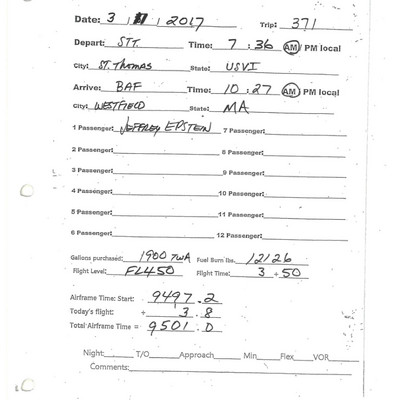 Date: 3 / / 2017 Trip: 371
Depart: STT Time: 7 : 36 AM / PM local
City: ST. THOMAS State: USVI
Arrive: BAF Time: 10 : 27 AM / PM local
City: WESTFIELD State: MA
1 Passenger: JEFFREY EPSTEIN 7 Passenger:
2 Passenger: 8 Passenger:
3 Passenger: 9 Passenger:
4 Passenger: 10 Passenger:
5 Passenger: 11 Passenger:
6 Passenger: 12 Passenger:
Gallons purchased: 1900 TWA Fuel Burn lbs. 12126
Flight Level: FL450 Flight Time: 3 + 50
Airframe Time: Start: 9497.2
Today's flight: + 3.8
Total Airframe Time = 9501.0
Night: T/O Approach Min Flex VOR
Comments: